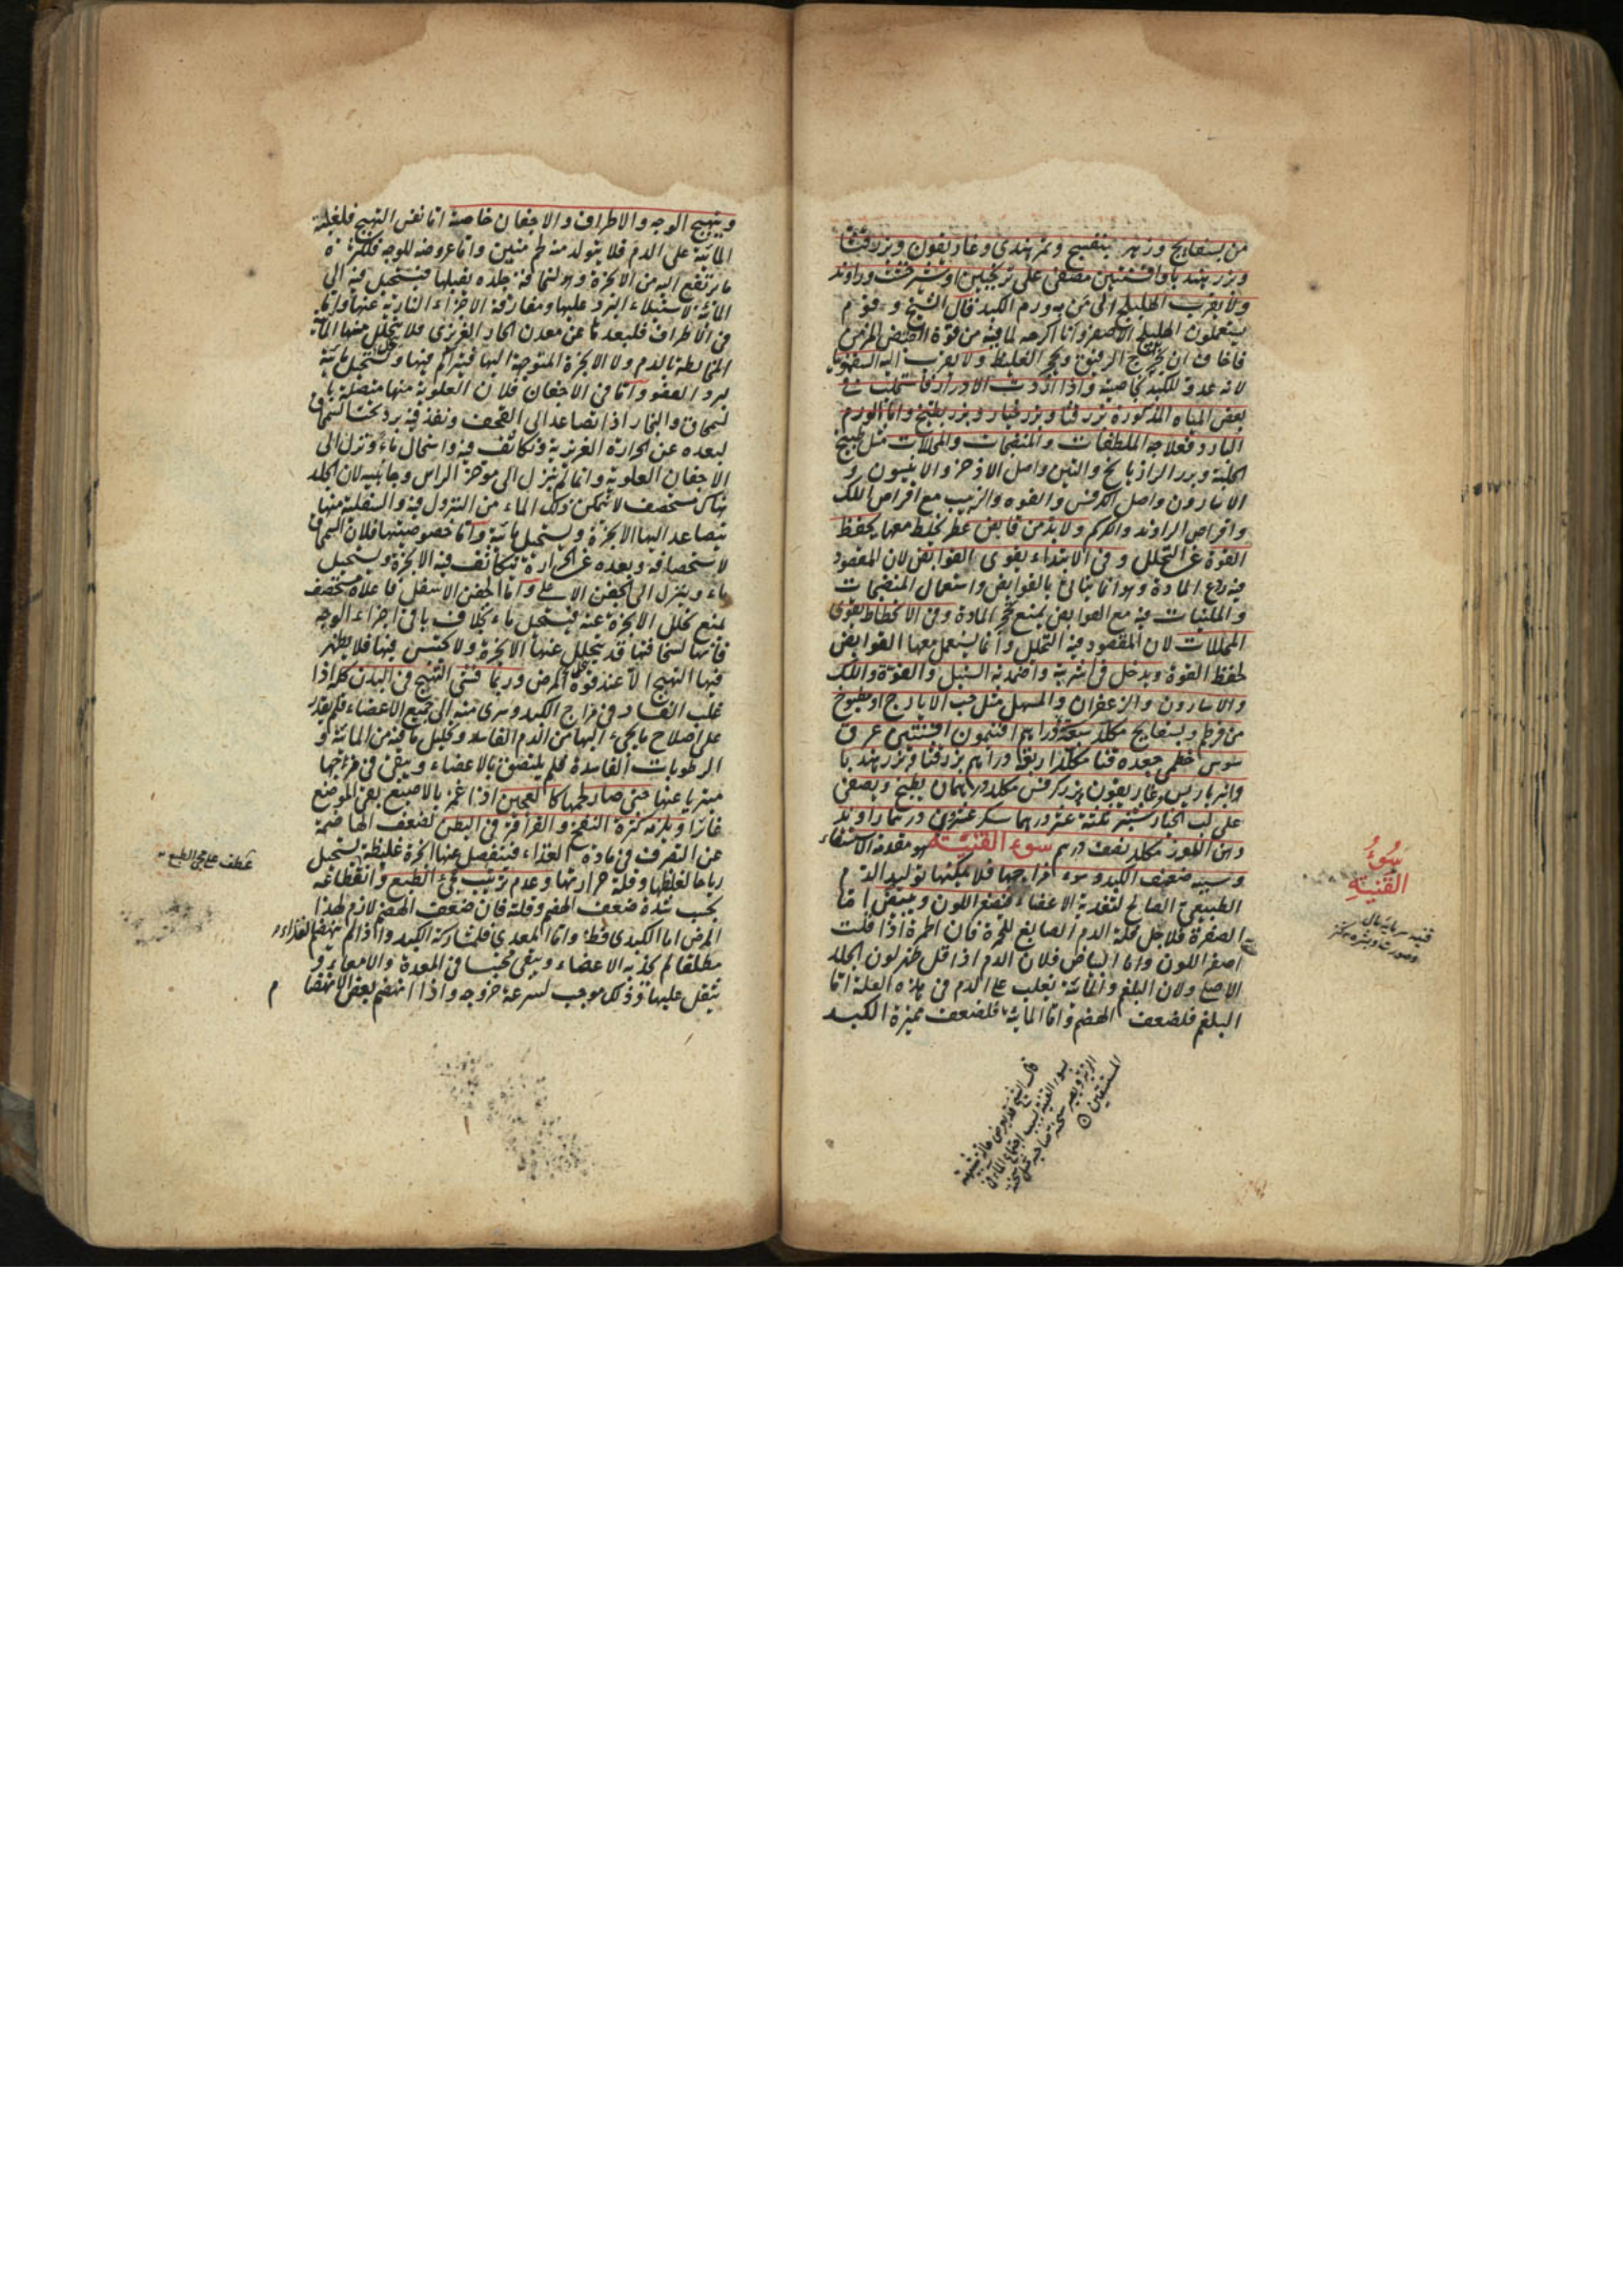 من بسفايج وزهر بنفسج وتمر هندي وغاريقون وبزر قثا
وبزر هندبا وافسنتين مصفى على ترنجبين او شيرخشت وراوند
ولا يقرب الهليلج الى من به ورم الكبد قال الشيخ وقوم
يستعملون الهليلج الاصفر وانا اكرهه لما فيه من قوة القبض المزمن
فاخاف ان يخرج الرقيق ويحجر الغليظ ولا يقرب اليه السقمونيا
لانه عدو للكبد بخاصية واذا اردت الادرار فاستعملت في
بعض المياه المذكورة بزر قثا وبزر خيار وبزر بطيخ واما الورم
البارد فعلاجه الملطفات والمنضجات والمحللات مثل طبيخ
الحلبة وبزر الرازيانج والتين واصل الاذخر والانيسون و
الاسارون واصل الكرفس والفوه والزبيب مع اقراص اللك
واقراص الراوند والكركم ولا بد من قابض عطر يخلط معها يحفظ
القوة عن التحلل وفي الابتداء يقوى القوابض لان المقصود
فيه ردع المادة وهو انما يتاتى بالقوابض واستعمال المنضجات
والملينات فيه مع القوابض يمنع تحجر المادة وفي الانحطاط يقوى
المحللات لان المقصود فيه التحلل وانما يستعمل معها القوابض
لحفظ القوة ويدخل في اشربته واضمدته السنبل والفوة واللك
والاسارون والزعفران والمسهل مثل حب الايارج او مطبوخ
من قرطم وبسفايج مكلد سبعة دراهم افتيمون افسنتين عرق
سوس خطمي جعده قثا مكلد اربعة دراهم بزر قثا وبزر هندبا
وانبرباريس غاريقون بزر كرفس مكلد درهمان يطبخ ويصفى
على لب الخيار شنبر ثلثة عشر درهما سكر عشرين درهما راوند
دهن اللوز مكلد نصف درهم سوء القنية هو مقدمة الاستسقاء
وسببه ضعف الكبد وسوء مزاجها فلا يمكنها توليد الدم
الطبيعي الصالح لتغذية الاعضاء فيصفر اللون ويبيض اما
الصفرة فلاجل قلة الدم الصابغ للحمرة فان الحمرة اذا قلت
اصفر اللون واما البياض فلان الدم اذا قل ظهر لون الجلد
الاصلي ولان البلغم والمائية يغلب على الدم في هذه العلة اما
البلغم فلضعف الهضم واما المائية فلضعف مميزة الكبد
سوء
القنية
قنيه سرمايه مال
قال الشيخ قد يعرض حالة شبيهة
بسوء القنية بسبب اجتماع الماء في
الرئة ويصير سحنة صاحبه مثل سحنة
المستسقين
ويتهيج الوجه والاطراف والاجفان خاصة اما نفس التهيج فلغلبة
المائية على الدم فلا يتولد منه لحم متين واما عروضه للوجه فلكثرة
ما يرتفع اليه من الابخرة وهو لسخافة جلده يقبلها فيستحيل فيه الى
المائية لاستيلاء البرد عليها ومفارقة الاجزاء النارية عنها واما
في الاطراف فلبعدها عن معدن الحار الغريزي فلا يتحلل منها المائية
المخالطة بالدم ولا الابخرة المتوجهة اليها فيتراكم فيها ويستحيل مائية
لبرد العضو واما في الاجفان فلان العلوية منها متصلة با
لسمحاق والبخار اذا تصاعد الى القحف ونفذ فيه برد تحت السمحاق
لبعده عن الحرارة الغريزية وتكاثف فيه واستحال ماء ونزل الى
الاجفان العلوية وانما لم ينزل الى موخر الراس وجانبيه لان الجلد
هناك مستحصف لا يمكن ذلك الماء من النزول فيه والسفلية منها
يتصاعد اليها الابخرة ويستحيل مائية واما خصوصيتها فلان السمحاق
لاستحصافه وبعده عن الحرارة يتكاثف فيه الابخرة ويستحيل
ماء وينزل الى الجفن الاعلى واما الجفن الاسفل فاعلاه مستحصف
يمنع تحلل الابخرة عنه فيستحيل ماء بخلاف باقي اجزاء الوجه
فانها لسخافتها قد يتحلل عنها الابخرة ولا يحتبس فيها فلا يظهر
فيها التهيج الا عند قوة المرض وربما فشى التهيج في البدن كله اذا
غلب الفساد في مزاج الكبد وسرى منه الى جميع الاعضاء فلم يقدر
على اصلاح ما يجيء اليها من الدم الفاسد وتحليل ما فيه من المائية و
الرطوبات الفاسدة فلم يلتصق بالاعضاء ويبقى في فرجها
متبريا عنها حتى صار لحمها كالعجين اذا غمز بالاصبع بقى الموضع
غائرا ويلزمه كثرة النفخ والقراقر في البطن لضعف الهاضمة
عن التصرف في مادة الغذاء فينفصل عنها ابخرة غليظة يستحيل
رياحا لغلظها وقلة حرارتها وعدم ترتيب مجيء الطبع وانقطاعه
بحسب شدة ضعف الهضم وقلته فان ضعف الهضم لازم لهذا
المرض اما الكبدي فظ واما المعدي فلمشاركة الكبد واذا لم ينهضم الغذاء
مطلقا لم يجذبه الاعضاء ويبقى محتبسا في المعدة والامعاء و
يثقل عليها وذلك موجب لسرعة خروجه واذا انهضم بعض الانهضام
عطف على مجيء الطبع